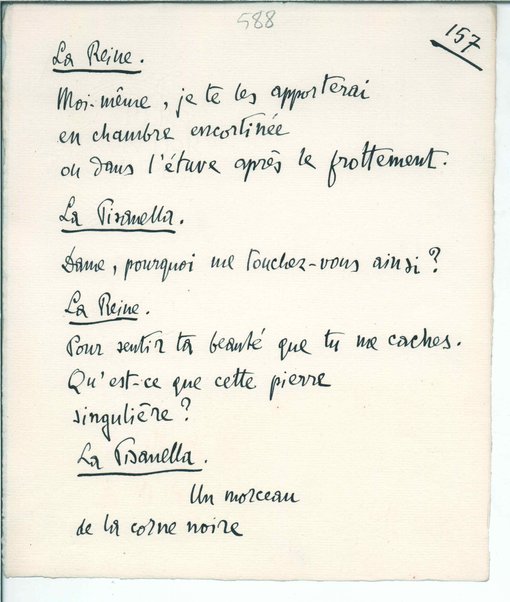 588
157
La Reine.
Moi-même, je te les apporterai
en chambre encortinée
ou dans l'étuve après le frottement.
La Pisanella.
Dame, pourquoi me touchez-vous ainsi?
La Reine.
Pour sentir ta beauté que tu me caches.
Qu'est-ce que cette pierre
singulière?
La Pisanella.
Un morceau
de la corne noire